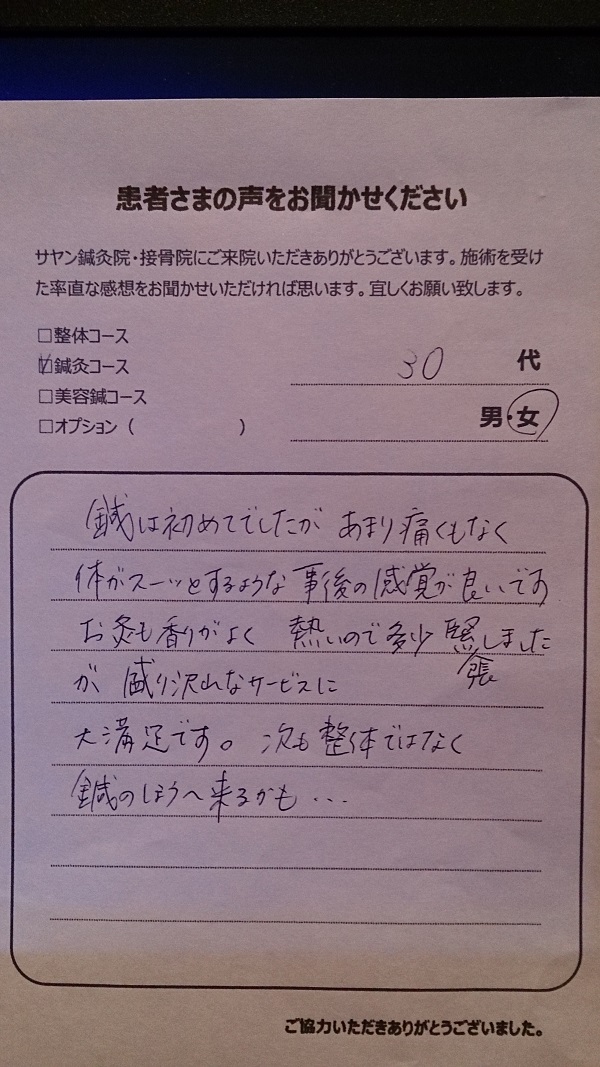 患者さまの声をお聞かせください
サヤン鍼灸院・接骨院にご来院いただきありがとうございます。施術を受け
た率直な感想をお聞かせいただければ思います。宜しくお願い致します。
□整体コース
☑鍼灸コース
□美容鍼コース
□オプション（　　　　　　）
30 代
男・女
鍼は初めてでしたが あまり痛くもなく
体がスーッとするような 事後の感覚が良いです
お灸も香りがよく 熱いので多少 緊張しました
が 盛り沢山なサービスに
大満足です。 次も整体ではなく
鍼のほうへ来るかも・・・
ご協力いただきありがとうございました。